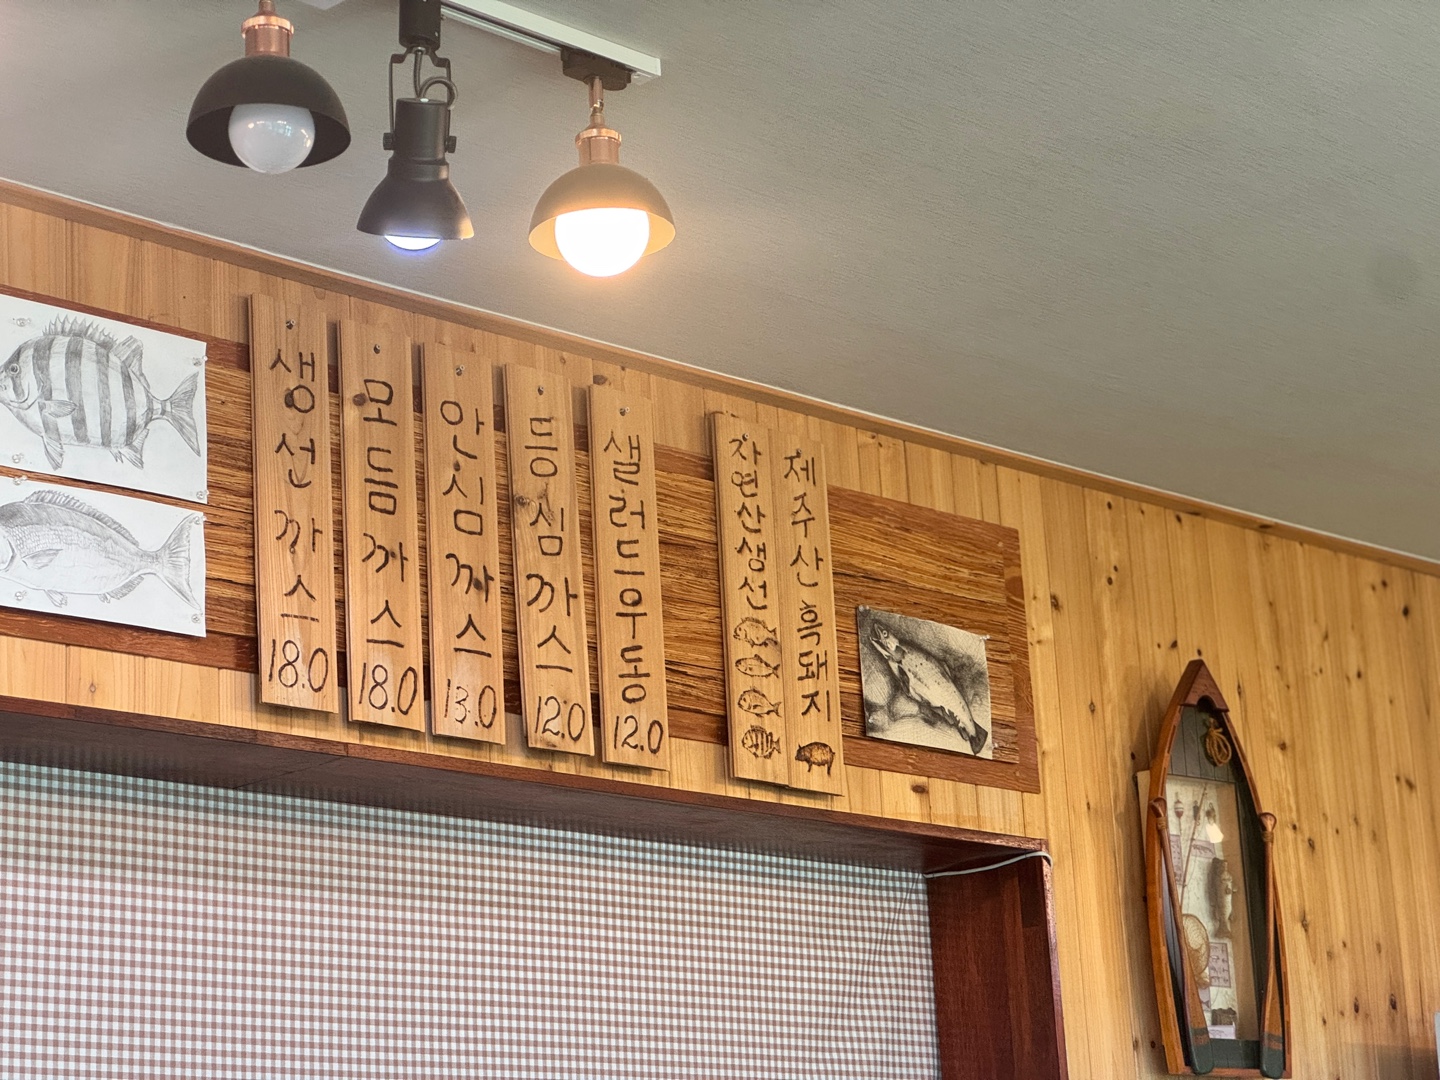 생선까스 18.0
모듬까스 18.0
안심까스 13.0
등심까스 12.0
샐러드우동 12.0
자연산생선
제주산흑돼지